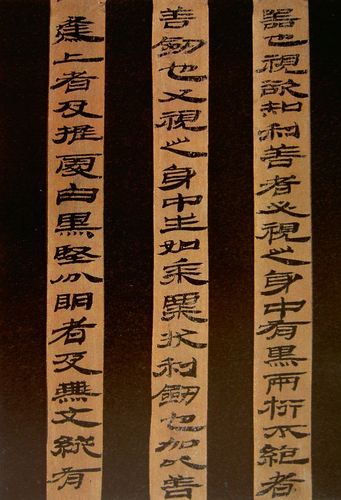 器也視欲知利善者必視之身中有黑兩桁不絕者
善劍也又視之身中生如黍粟狀利劍也加以善
隨上者及推處白黑堅分明者及無文縱有